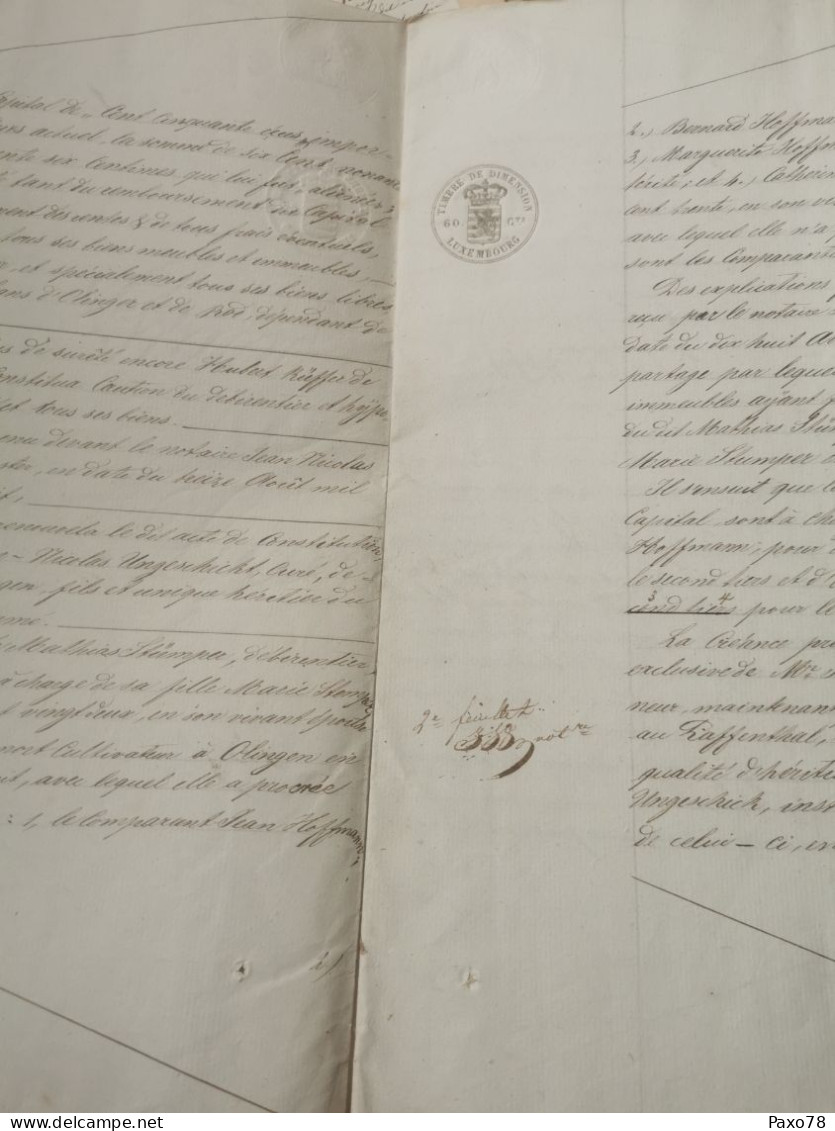 Capital de Cent Cinquante écus imper-
actuel, la somme de six Cent nonante
six Centimes qui lui fois, aldenier 3
tant du remboursement du Capital
des rentes & de tous frais éventuels,
tous ses biens meubles et immeubles,
et spécialement tous ses biens libres
d'Olinger et de Rod, dépendant de
de sureté encore Hubert Küffer de
Constitua Caution du débirentier et hypo
et tous ses biens.
devant le notaire Jean Nicolas
en date du treize Août mil
le dit acte de Constitution,
Nicolas Ungeschickt, Curé, de-
fils et unique héritier du
Mathias Stümper, débirentier,
à charge de sa fille Marie Stümper
vingt deux, en son vivant épouse
mort Cultivateur à Olingen en
avec lequel elle a procréé
: 1, le Comparant Jean Hoffmann,
TIMBRE DE DIMENSION
60 Cts
LUXEMBOURG
2e feuillet
not re
2, Bernard Hoffma
3, Marguerite Hoffm
térite; et 4, Catherin
ent trente, en son viv
avec lequel elle n'a p
sont les Comparants
Des explications f
reçu par le notaire
date du dix huit Ao
partage par leque
immeubles ayant p
du dit Mathias Stüm
Marie Stumper
Il s'ensuit que le
Capital sont à cha
Hoffmann, pour
le second tiers et d
3 4
cond tiers pour le
La Créance pri
exclusive de Mr.
neur, maintenan
au Pfaffenthal,
qualité d'hérite
Ungeschick, inst
de celui-ci, en
Paxo78